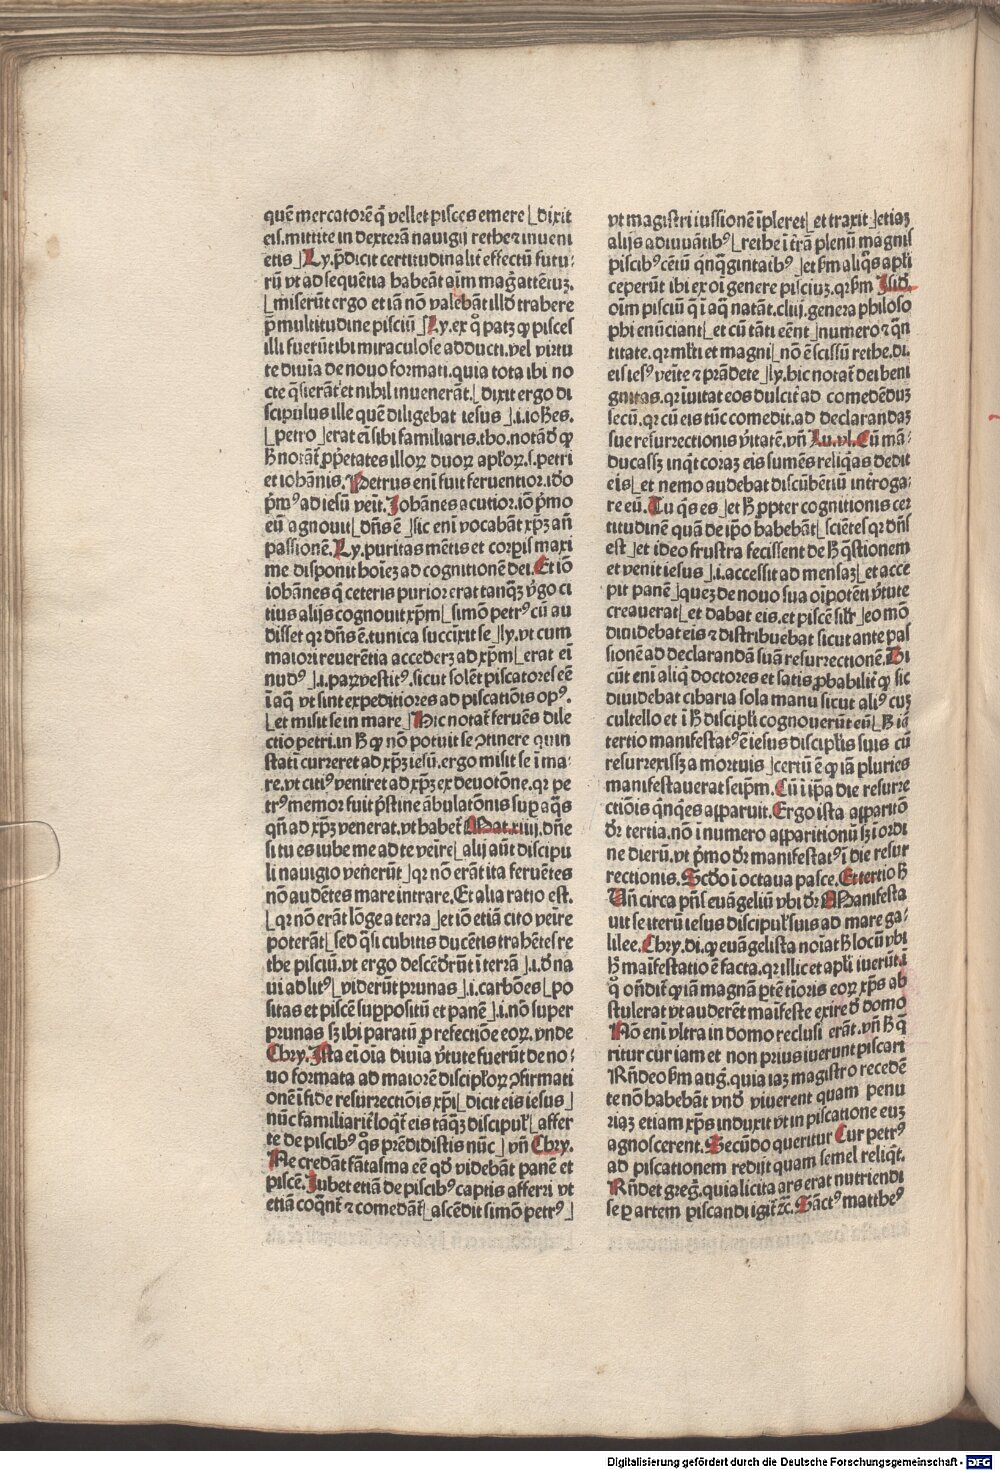 quē mercatorē q̄ vellet pisces emere ⌊dixit
eis. mittite in dexterā nauigij rethe ⁊ inueni
etis⌋ Ly. p̄dicit certitudinalit̄ effectū futu⸗
rū vt ad sequētia habeāt aīm maḡ attētuz.
⌊miserūt ergo et iā nō valebāt illḋ trahere
p̄ multitudine pisciū⌋ Ly. ex q̊ patz ꝙ pisces
illi fuerūt ibi miraculose adducti. vel virtu
te diuīa de nouo formati. quia tota ibi no
cte q̄sierāt et nihil inuenerāt. ⌊dixit ergo di
scipulus ille quē diligebat iesus⌋ .i. iohēs.
⌊petro⌋ erat eī sibi familiaris. tho. notādȝ ꝙ
ħ notāt̄ ꝓp̄etates illoꝝ duoꝝ apl̄oꝝ. s. petri
et iohānis. Petrus enī fuit feruentior. idō
p̄mꝰ ad iesū veīt. Johānes acutior. iō p̄mo
eū agnouit ⌊dn̄s ē⌋ sic enī vocabāt xp̄ꝫ an̄
passionē. Ly. puritas mētis et corꝑis maxi
me disponit hoīez ad cognitionē dei. Et iō
iohānes q̄ ceteris purior erat tanqȝ v̓go ci
tius alijs cognouit xp̄m ⌊simō petrꝰ cū au
disset qꝛ dn̄s ē. tunica succīxit se⌋ ly. vt cum
maiori reuerētia accederꝫ ad xp̄m ⌊erat eī
nudꝰ⌋ .i. paꝝ vestitꝰ. sicut solēt piscatores eē
ī aq̄ vt sint expeditiores ad piscatiōis opꝰ.
⌊et misit se in mare⌋ Hic notat̄ feruēs dile
ctio petri. in ħ ꝙ nō potuit se ꝯtinere quin
statī curreret ad xp̄ꝫ iesū. ergo misit se ī ma⸗
re. vt citiꝰ veniret ad xp̄ꝫ ex deuotōne. qꝛ pe
trꝰ memor fuit p̄stine ābulatōnis suꝑ aq̄s
qn̄ ad xp̄ꝫ venerat. vt habet̄ Mat. xiiij. dn̄e
si tu es iube me ad te veīre ⌊alij aūt discipu
li nauigio venerūt⌋ qꝛ nō erāt ita feruētes
nō audētes mare intrare. Et alia ratio est.
⌊qꝛ nō erāt lōge a terra⌋ et iō etiā cito veīre
poterāt ⌊sed q̄si cubitis ducētis trahētes re
the pisciū. vt ergo descēderūt ī terrā⌋ .i. d̄ na
ui ad litꝰ ⌊viderūt prunas⌋ .i. carbōes ⌊po
sitas et piscē suppositū et panē⌋ .i. nō super
prunas sȝ ibi paratū ꝓ refectiōe eoꝝ. vnde
Chry. Ista eī oīa diuīa v̓tute fuerūt de no⸗
uo formata ad maiorē discipl̄oꝝ ꝯfirmati
onē ī fide resurrectiōis xp̄i ⌊dicit eis iesus⌋
nūc familiarit̄ loqt̄ eis tāqȝ discipul̄ ⌊affer
te de piscibꝰ q̊s prēdidistis nūc⌋ vn̄ Chry.
Ne credāt fātasma eē qḋ videbāt panē et
piscē. Jubet etiā de piscibꝰ captis afferri vt
etiā coq̄nt̄ ⁊ comedāt̄ ⌊ascēdit simō petrꝰ⌋
vt magistri iussionē īpleret ⌊et traxit⌋ etiaꝫ
alijs adiuuātibꝰ ⌊rethe ī t̓rā plenū magnis
piscibꝰ cētū qnq̄gintatribꝰ⌋ et ẜm aliq̊s apl̄i
ceperūt ibi ex oī genere pisciuꝫ. qꝛ ẜm Isid.
oīm pisciū q̄ ī aq̄ natāt. cliij. genera philoso
phi enūciant ⌊et cū tāti eēnt⌋ numero ⁊ q̄n
titate. qꝛ ml̄ti et magni ⌊nō ē scissū rethe. di.
eis iesꝰ veīte ⁊ prādete⌋ ly. hic notat̄ dei beni
gnitas. qꝛ īuitat eos dulcit̄ ad comedēduꝫ
secū. qꝛ cū eis tūc comedit. ad declarandaꝫ
sue resurrectionis v̓itatē. vn̄ Lu. vl. Cū mā⸗
ducassꝫ inqt coraꝫ eis sumēs reliq̄as dedit
eis ⌊et nemo audebat discūbētiū int̓roga⸗
re eū. Tu q̄s es⌋ et ħ ꝓpter cognitionis cer
titudinē quā de ip̄o habebāt ⌊sciētes qꝛ dn̄s
est⌋ et ideo frustra fecissent de ħ q̄stionem
et venit iesus⌋ .i. accessit ad mensaꝫ ⌊et acce
pit panē⌋ queꝫ de nouo sua oīpotēti v̓tute
creauerat ⌊et dabat eis. et piscē sil̄r⌋ eo mō
diuidebat eis ⁊ distribuebat sicut ante pas
sionē ad declarandā suā resurrectionē. Di
cūt enī aliq̄ doctores et satis ꝓbabilit̄ ꝙ sic
diuidebat cibaria sola manu sicut aliꝰ cuꝫ
cultello et ī ħ discipl̄i cognouerūt eū ⌊ħ iā
tertio manifestatꝰ ē iesus discipl̄is suis cū
resurrexissꝫ a mortuis⌋ certū ē ꝙ iā pluries
manifestauerat seip̄m. Cū ī ip̄a die resurre
ctiōis qnq̄es apparuit. Ergo ista apparitō
d̄r tertia. nō ī numero apparitionū sȝ ī ordi
ne dierū. vt p̄mo d̄r manifestatꝰ ī die resur
rectionis. Scḋo ī octaua pasce. Et tertio ħ
Vn̄ circa p̄ns euāgeliū vbi d̄r Manifesta
uit se iterū iesus discipul̄ suis ad mare ga⸗
lilee. Chry. di. ꝙ euāgelista noīat ħ locū vbi
ħ māifestatio ē facta. qꝛ illic et apl̄i iuerūt ī
q̊ on̄dit̄ ꝙ iā magnā ꝑtē tīoris eoꝝ xp̄s ab
stulerat vt auderēt māifeste exire d̄ domo
Nō enī vltra in domo reclusi erāt. vn̄ ħ q̄
ritur cur iam et non prius iuerunt piscari
Rn̄deo ẜm auḡ. quia iaꝫ magistro recedē
te nō habebāt vnḋ viuerent quam penu
riaꝫ etiam xp̄s induxit vt in piscatione euꝫ
agnoscerent. Secūdo queritur Cur petrꝰ
ad piscationem redijt quam semel reliqt̄.
Rn̄det greḡ. quia licita ars erat nutriendi
se ꝑ artem piscandi igit̄ ⁊c̄. Sāctꝰ mattheꝰ
Digitalisierung gefördert durch die Deutsche Forschungsgemeinschaft - DFG